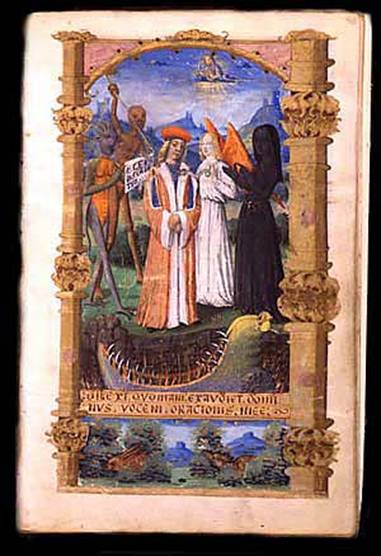 DILEXI. QVONIAM. EXAVDIET. DOMI
NVS. VOCEM. ORACIONIS. MEE.